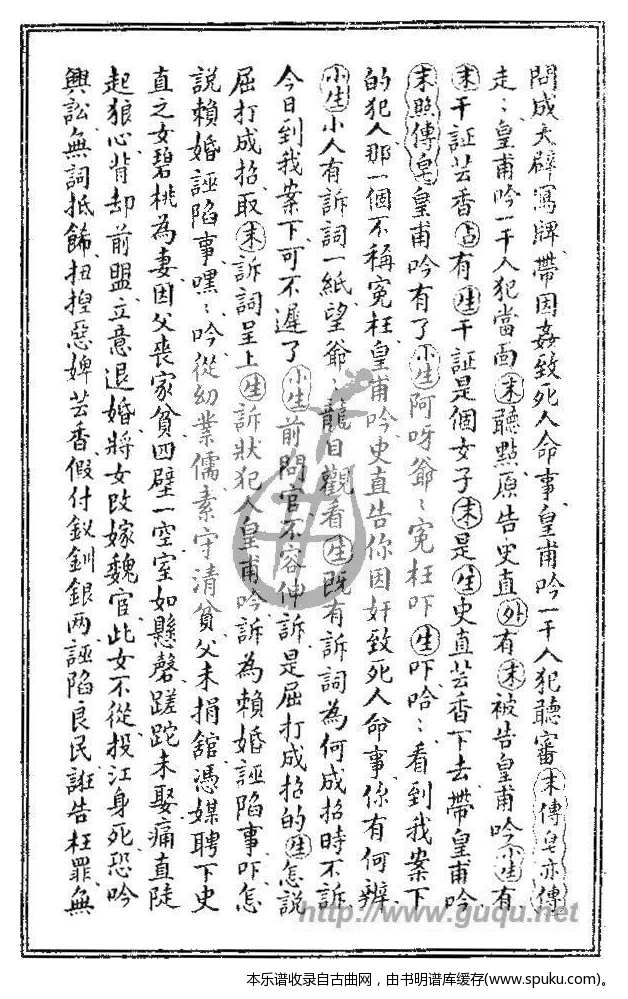 問成大辟寫牌帶因姦致死人命事皇甫吟一干人犯聽審末傳皂亦傳
走〻皇甫吟一干人犯當面末聽點原告史直外有末被告皇甫吟小生有
末干証芸香占有生干証是個女子末是生史直芸香下去帶皇甫吟
末照傳皂皇甫吟有了小生阿呀爺〻寃枉吓生吓哈〻看到我案下
的犯人那一個不稱寃枉皇甫吟史直告你因奸致死人命事你有何辨
小生小人有訴詞一紙望爺〻龍目觀看生既有訴詞為何成招時不訴
今日到我案下可不遲了小生前問官不容伸訴是屈打成招的生怎說
屈打成招取末訴詞呈上生訴狀犯人皇甫吟訴為賴婚誣陷事吓怎
說賴婚誣陷事嘿〻吟從幼業儒素守清貧父未捐舘憑媒聘下史
直之女碧桃為妻因父喪家貧四壁一空室如懸磬蹉跎未娶痛直陡
起狼心背却前盟立意退婚將女改嫁魏宦此女不從投江身死恐吟
興訟無詞抵餙扭揑惡婢芸香假付釵釧銀两誣陷良民誑告枉罪無
http://www.guqu.net
本乐谱收录自古曲网，由书明谱库缓存(www.spuku.com)。